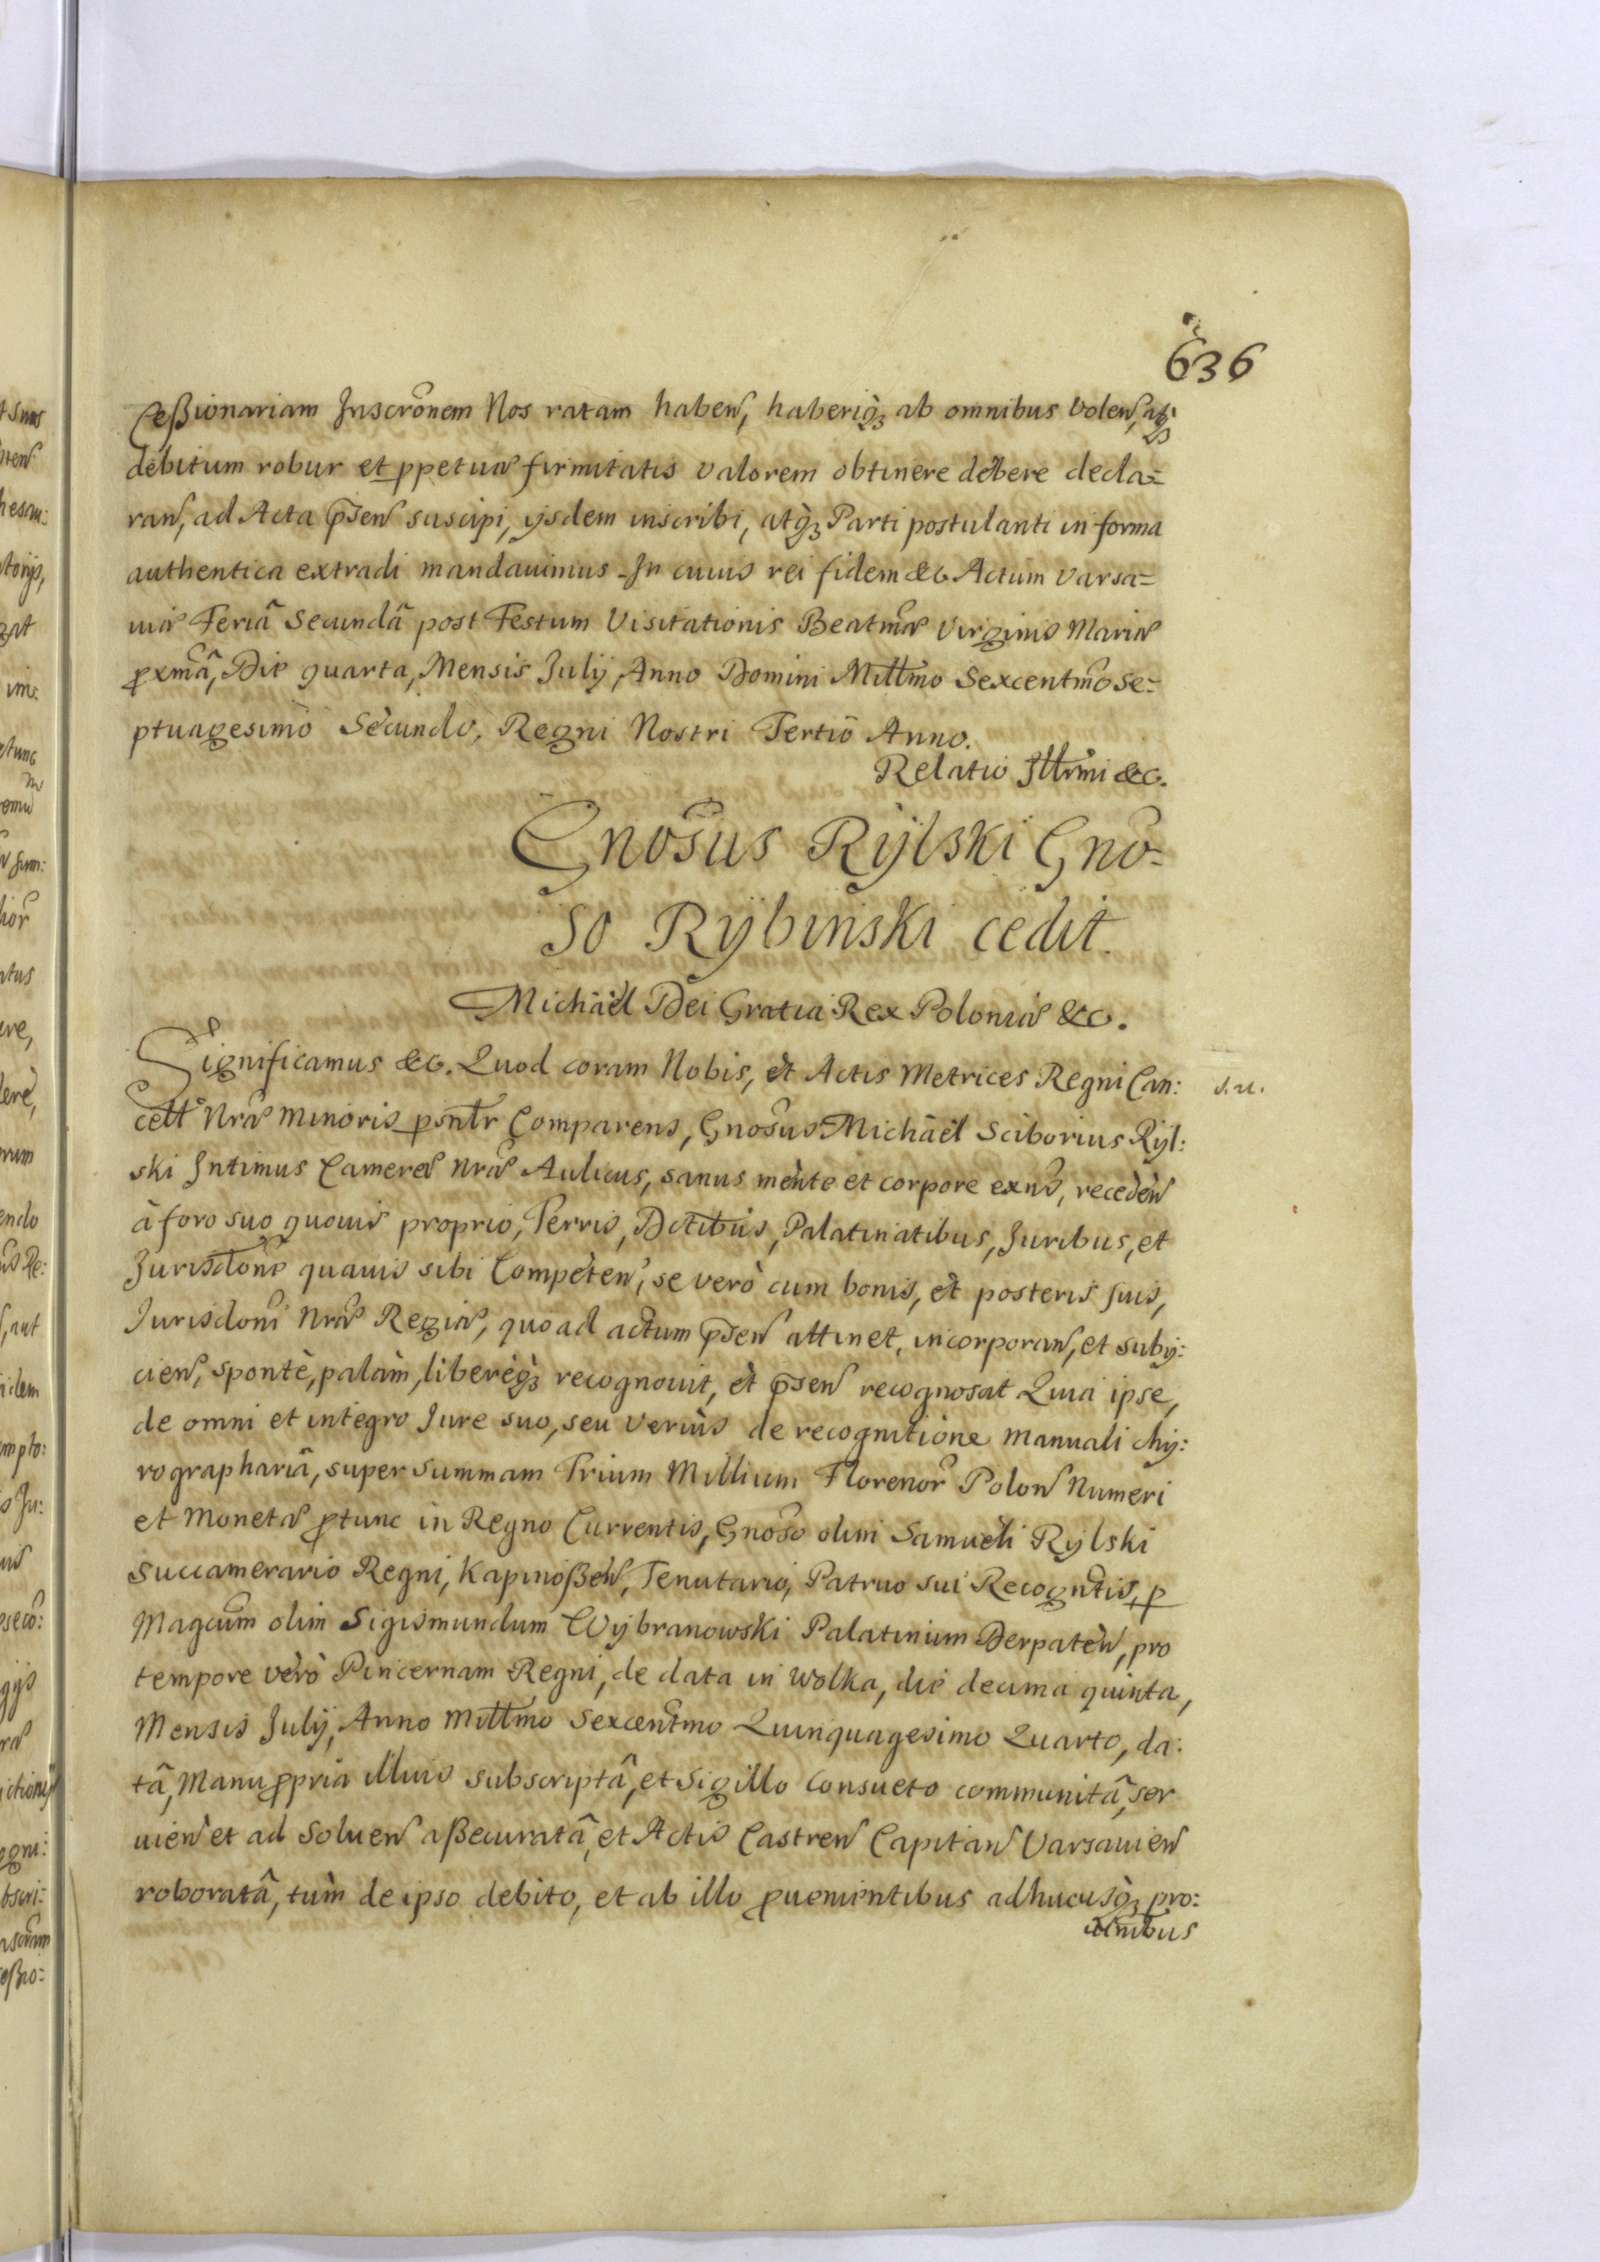 636
Ceßionariam Inscrônem Nos ratam haben, haberiq3 ab omnibus volen, atq3
debitum robur et ppetuæ firmitatis valorem obtinere debere decla=
ran, ad Acta p̃sen suscipi, ijsdem inscribi, atq3 Parti postulanti in forma
authentica extradi mandauimus. In cuius rei fidem &c. Actum Varsa=
uiæ Feriâ Secundâ post Festum Visitationis Beatmæ Virginis Mariæ
pxmâ, Die quarta, Mensis Julij, Anno Domini Millmo Sexcentmo Se=
ptuagesimo Secundo, Regni Nostri Tertio Anno.
Relatio Illrmi &c.
Gnosus Rylski Gno-
so Rybinski cedit.
Michäel Dei Gratia Rex Poloniæ &c.
Significamus &c. Quod coram Nobis, et Actis Metrices Regni Can: S. U.
cell Nræ minoris psntr Comparens, Gnosus Michäel Sciborius Ryl:
ski Intimus Cameræ Nræ Aulicus, sanus mente et corpore exns, receden
à foro suo quouis proprio, Terris, Dctibus, Palatinatibus, Juribus, et
Jurisdone quauis sibi Competen, se verò cum bonis, et posteris suis,
Jurisdoni Nræ Regiæ, quo ad actum p̃sen attinet, incorporan, et subij:
cien, spontè, palàm, liberèq3 recognouit, et p̃sen recognosat Quia ipse,
de omni et integro Jure suo, seu veriùs de recognitione manuali chy:
rographariâ, super summam Trium Millium Florenor Polon Numeri
et Monetæ ptunc in Regno Currentis, Gnoso olim Samueli Rylski
Succamerario Regni, Kapinoßen, Tenutario, Patruo sui Recogntis, p
Magcum olim Sigismundum Wybranowski Palatinum Derpaten, pro
tempore verò Pincernam Regni, de data in Wolka, die decima quinta,
Mensis Julij, Anno Millmo Sexcentmo Quinquagesimo Quarto, da:
tâ, Manu ppria illius subscriptâ, et Sigillo Consueto communitâ, ser
uien et ad Soluen aßecuratâ, et Actis Castren Capitan Varsauien
roboratâ, tùm de ipso debito, et ab illo puenientibus adhucusq3 pro: